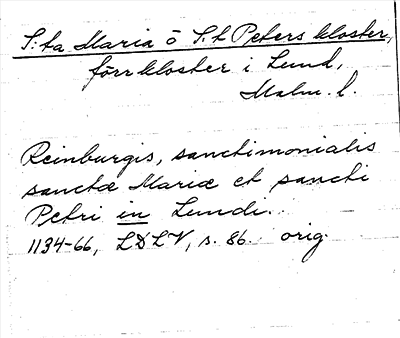 S:ta Maria o S:t Peters kloster,
förr kloster i Lund,
Malm. l.
Reinburgis, sanctimonialis
sanctæ Mariæ et sancti
Petri in Lundi.
1134-66, LDLV, s. 86. orig.